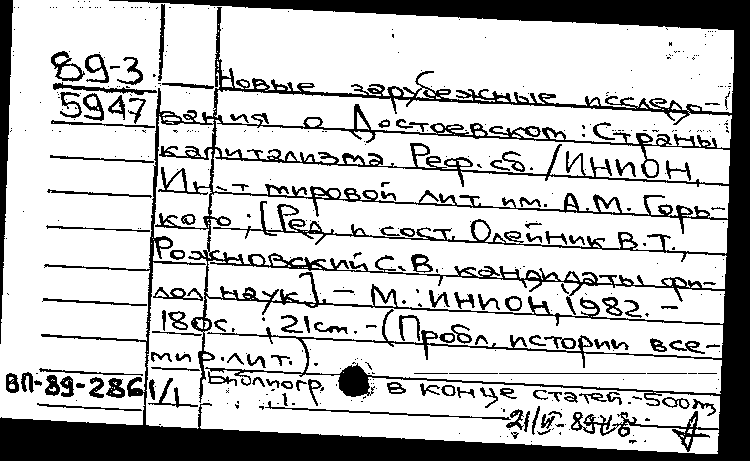 89-3
5947
Новые зарубежные исследо-
вания о Достоевском: Страны
капитализма. Реф. сб. /ИНИОН,
Ин-т мировой лит. им. А.М. Горь-
кого; [Ред. и сост. Олейник В.Т.,
Рожновский С.В., кандидаты фи-
лол. наук]. - М.: ИНИОН, 1982. -
180с. ; 21см. - (Пробл. истории все-
мир. лит.).
ВП-89-286 1/1 Библиогр. в конце статей. - 500